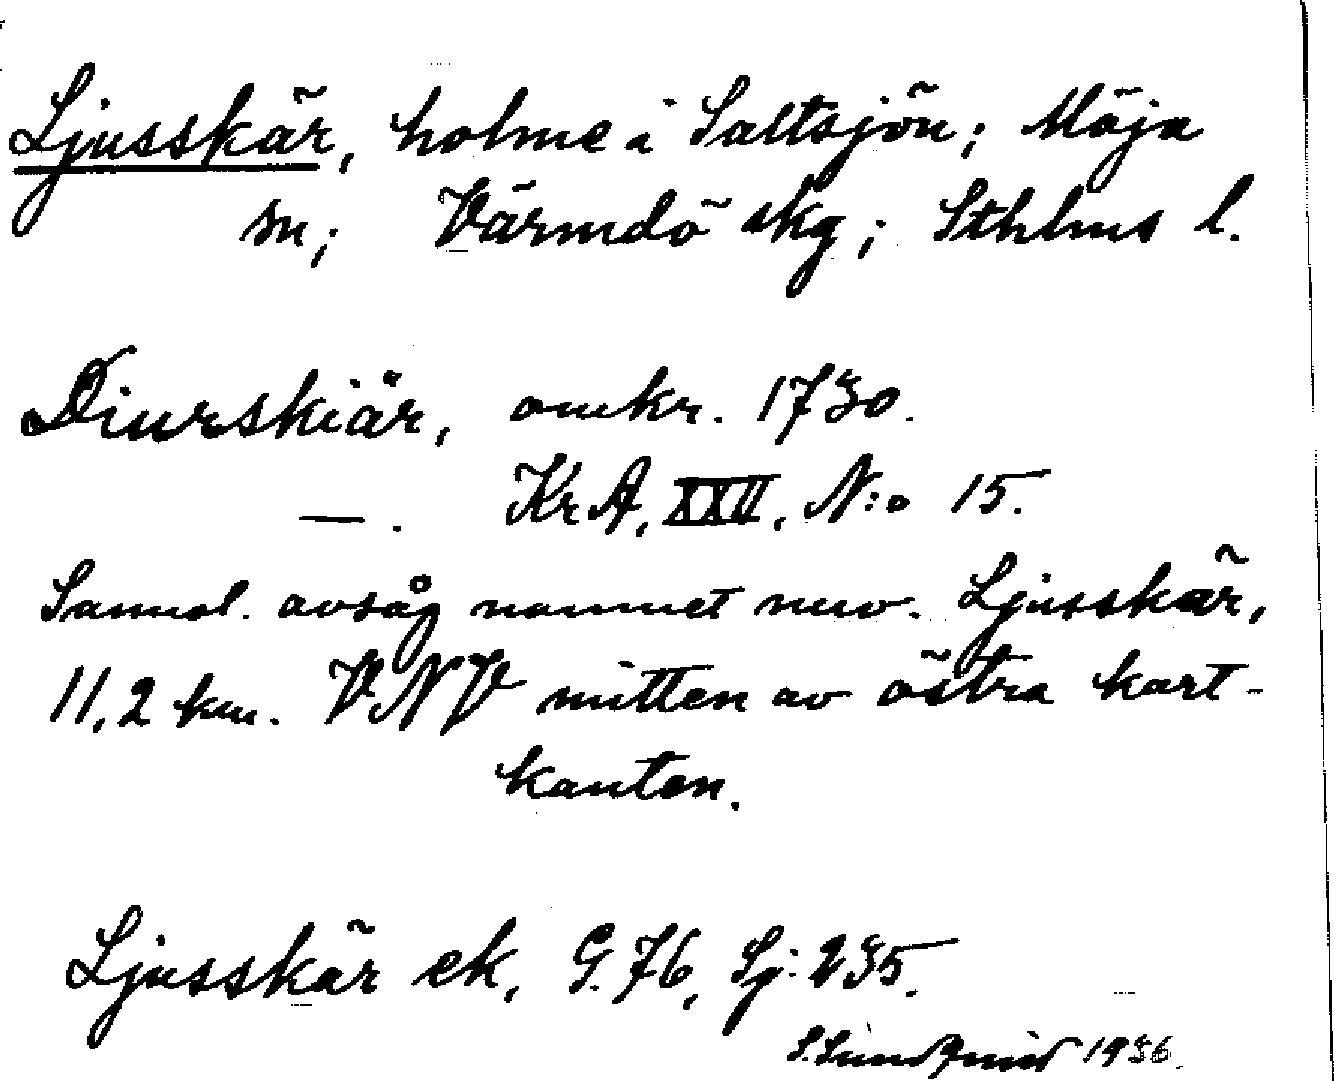 Ljusskär, holme i Saltsjön; Möja
sn; Värmdö skg; Sthlms l.
Diurskiär, omkr. 1730.
—. KrA, XXV, N:o 15.
Sannol. avsåg namnet nuv. Ljusskär,
11,2 km. VNV mitten av östra kart-
kanten.
Ljusskär ek, G. 76, Sj: 235.
S. Lundqvist 1936.